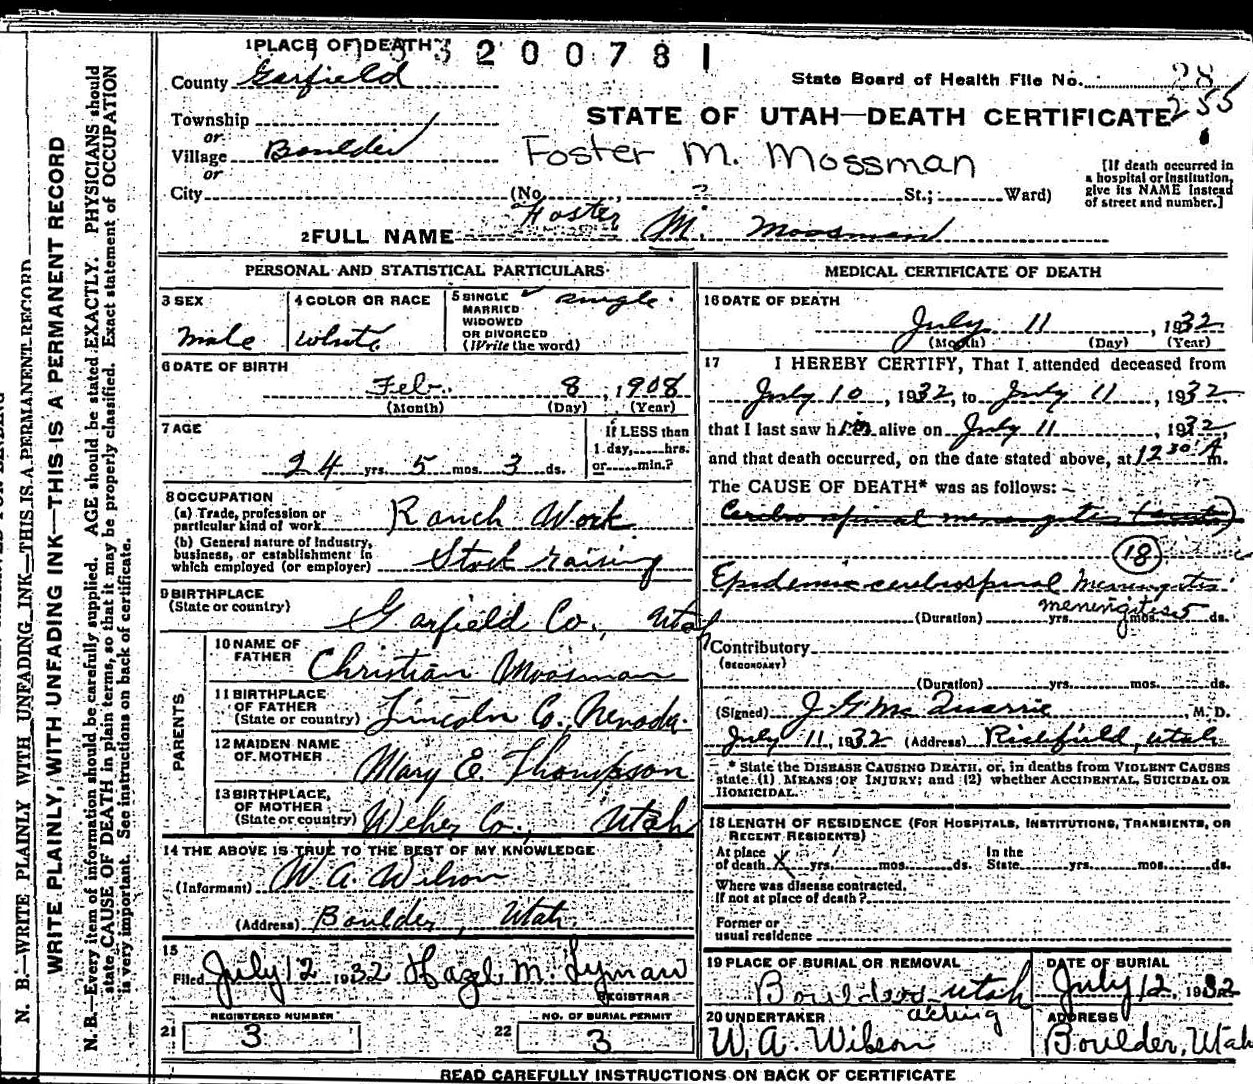 1 PLACE OF DEATH 3200781
County Garfield
State Board of Health File No. 28
255
Township
STATE OF UTAH—DEATH CERTIFICATE
or
Village Boulder
Foster M. Mossman
or
City (No. St.; Ward)
[If death occurred in
a hospital or institution,
give its NAME instead
of street and number.]
2 FULL NAME Foster M. Mossman
PERSONAL AND STATISTICAL PARTICULARS
3 SEX
male
4 COLOR OR RACE
white
5 SINGLE
MARRIED
WIDOWED
OR DIVORCED
(Write the word)
single
6 DATE OF BIRTH
Feb. 8, 1908
(Month) (Day) (Year)
7 AGE
24 yrs. 5 mos. 3 ds.
If LESS than
1 day, hrs.
or min.?
8 OCCUPATION
(a) Trade, profession or
particular kind of work Ranch Work
(b) General nature of Industry,
business, or establishment in
which employed (or employer) Stock raising
9 BIRTHPLACE
(State or country) Garfield Co., Utah
PARENTS
10 NAME OF
FATHER Christian Mossman
11 BIRTHPLACE
OF FATHER
(State or country) Lincoln Co., Nevada.
12 MAIDEN NAME
OF MOTHER Mary E. Thompson
13 BIRTHPLACE
OF MOTHER
(State or country) Weber Co., Utah
14 THE ABOVE IS TRUE TO THE BEST OF MY KNOWLEDGE
(Informant) W. A. Wilson
(Address) Boulder, Utah
15
Filed July 12 1932 Hazel M. Lyman
REGISTRAR
21 REGISTERED NUMBER
3
22 NO. OF BURIAL PERMIT
3
MEDICAL CERTIFICATE OF DEATH
16 DATE OF DEATH
July 11, 1932
(Month) (Day) (Year)
17 I HEREBY CERTIFY, That I attended deceased from
July 10, 1932, to July 11, 1932
that I last saw him alive on July 11, 1932,
and that death occurred, on the date stated above, at 12 30 A m.
The CAUSE OF DEATH* was as follows:
Cerebro spinal meningitis
18
Epidemic cerebrospinal Meningitis
meningitis
(Duration) yrs. mos. 5 ds.
Contributory
(SECONDARY)
(Duration) yrs. mos. ds.
(Signed) J G McQuarrie, M. D.
July 11, 1932 (Address) Richfield, Utah
* State the DISEASE CAUSING DEATH, or, in deaths from VIOLENT CAUSES
state (1) MEANS OF INJURY; and (2) whether ACCIDENTAL, SUICIDAL OR
HOMICIDAL.
18 LENGTH OF RESIDENCE (FOR HOSPITALS, INSTITUTIONS, TRANSIENTS, OR
RECENT RESIDENTS)
At place
of death X yrs. mos. ds.
In the
State yrs. mos. ds.
Where was disease contracted,
If not at place of death?
Former or
usual residence
19 PLACE OF BURIAL OR REMOVAL
Boulder Utah
DATE OF BURIAL
July 12, 1932
20 UNDERTAKER acting
W. A. Wilson
ADDRESS
Boulder, Utah
READ CAREFULLY INSTRUCTIONS ON BACK OF CERTIFICATE
N. B.—WRITE PLAINLY WITH UNFADING INK—THIS IS A PERMANENT RECORD
WRITE PLAINLY, WITH UNFADING INK—THIS IS A PERMANENT RECORD
N. B.—Every item of information should be carefully supplied. AGE should be stated EXACTLY. PHYSICIANS should
state CAUSE OF DEATH in plain terms, so that it may be properly classified. Exact statement of OCCUPATION
is very important. See instructions on back of certificate.